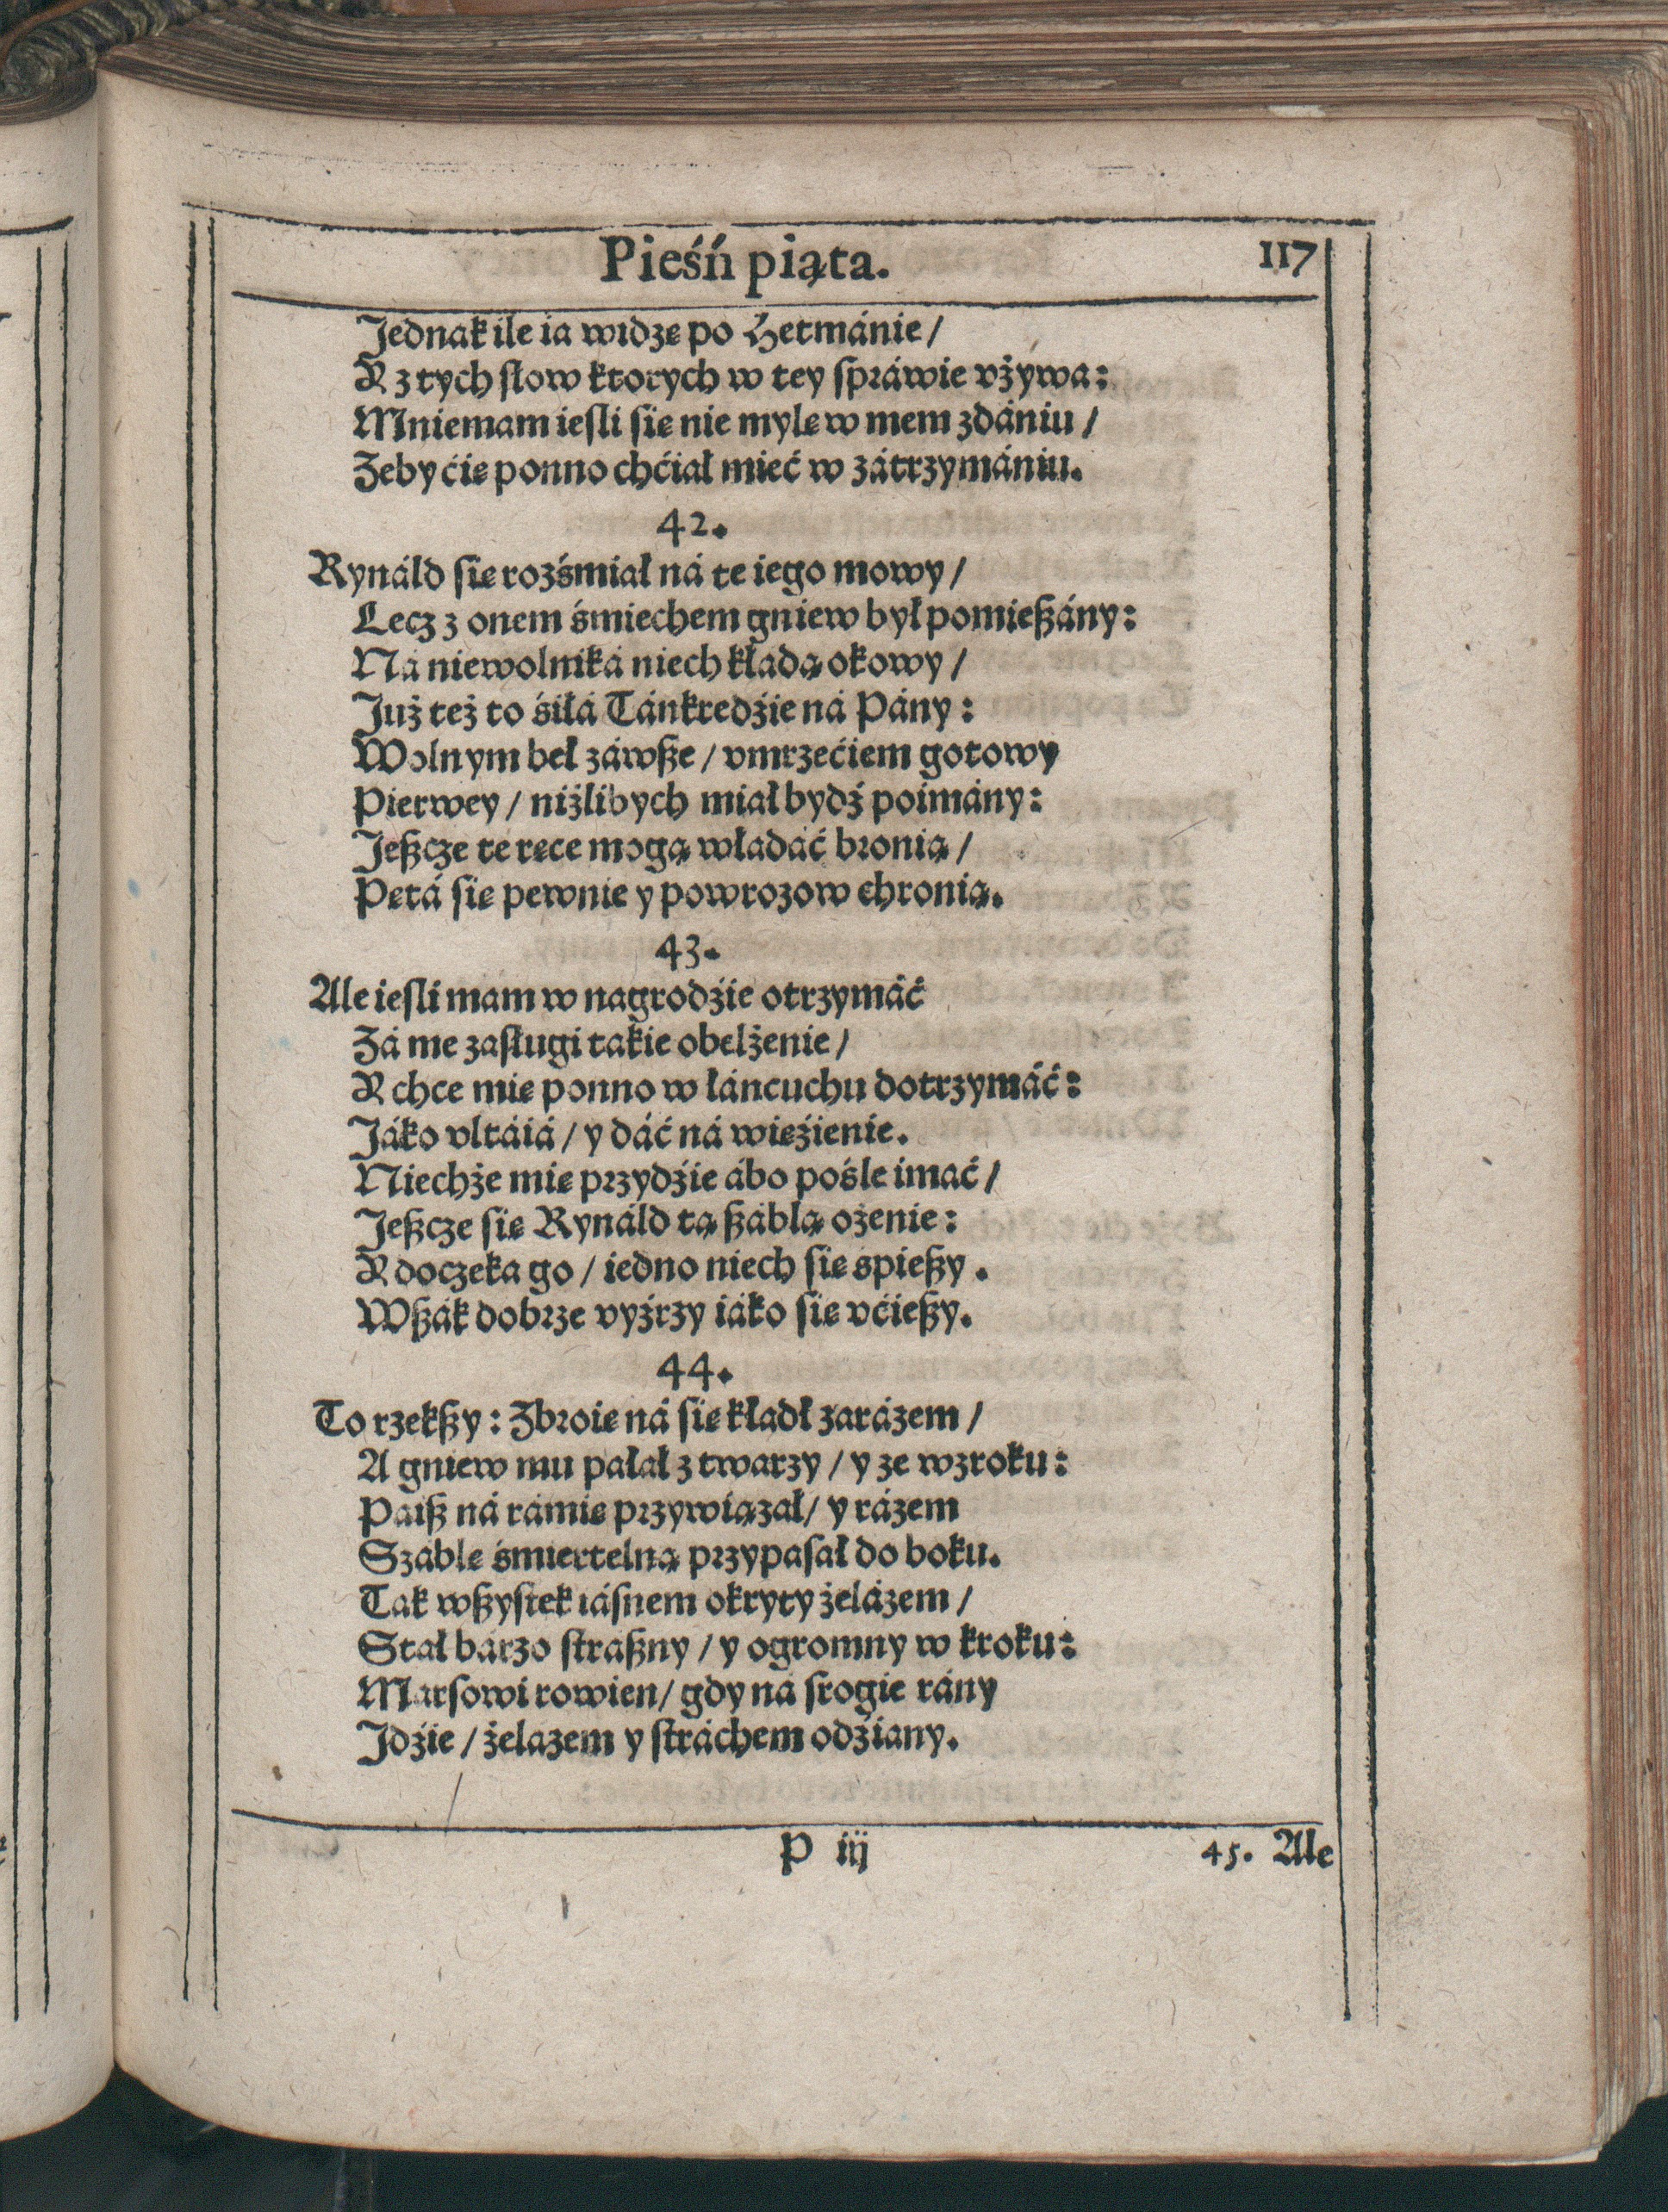 Pieśń piąta. 117
Jednak ile ia widzę po Hetmánie/
A z tych słow ktorych w tey spráwie vżywa:
Mniemam iesli się nie mylę w mem zdániu/
Zeby ćię ponno chćiał mieć w zátrzymániu.
42.
Rynáld się rozśmiał ná te iego mowy/
Lecz z onem śmiechem gniew był pomießány:
Ná niewolniká niech kładą okowy/
Już też to śiłá Tánkredźie ná Pány:
Wolnym beł záwße/ vmrzećiem gotowy
Pierwey/ niżlibych miał bydź poimány:
Jeßcze te ręce mogą władáć bronią/
Pętá się pewnie y powrozow chronią.
43.
Ale iesli mam w nagrodźie otrzymáć
Zá me zasługi takie obelżenie/
A chce mię ponno w łáncuchu dotrzymáć:
Jáko vltáiá/ y dáć ná więźienie.
Niechże mię przydźie ábo pośle imáć/
Jeßcze się Rynáld tą ßáblą ożenie:
A doczeka go/ iedno niech się spießy.
Wßák dobrze vyźrzy iáko się vćießy.
44.
To rzekßy: Zbroię ná się kładł zarázem/
A gniew mu pałał z twarzy/ y ze wzroku:
Paiß ná rámię przywiązał/ y rázem
Száblę śmiertelną przypasał do boku.
Tak wßystek iásnem okryty żelázem/
Stał bárzo straßny/ y ogromny w kroku:
Marsowi rowien/ gdy ná srogie rány
Jdźie/ żelazem y stráchem odźiany.
P iij 45. Ale